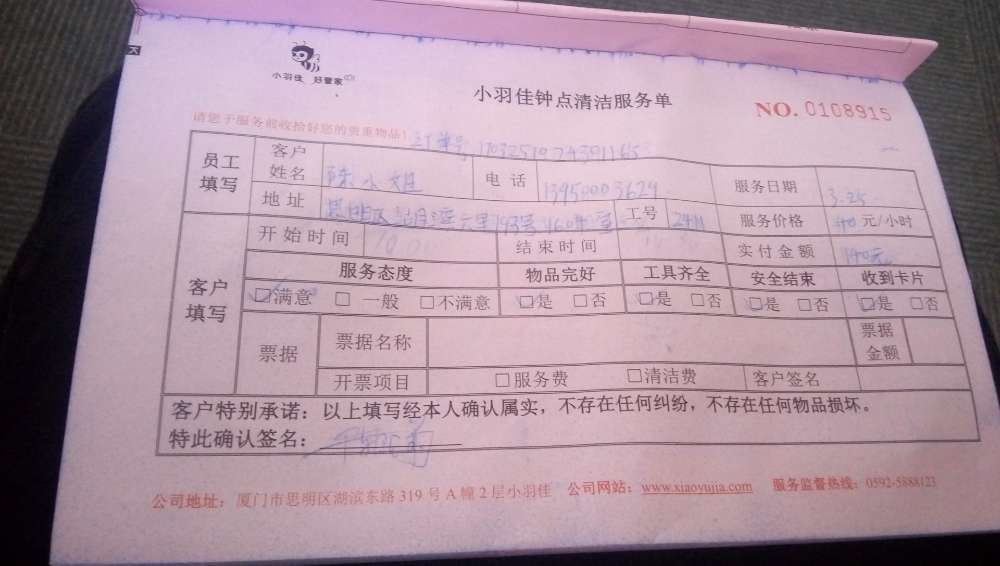 小羽佳 好管家
小羽佳钟点清洁服务单
NO. 0108915
请您于服务前收拾好您的贵重物品!
订单号
员工填写 客户姓名 陈小姐 电话 13950003629 服务日期 3.25
地址 思明区 工号 服务价格 元/小时
客户填写 开始时间 结束时间 实付金额 140元
服务态度 物品完好 工具齐全 安全结束 收到卡片
□满意 □一般 □不满意 □是 □否 □是 □否 □是 □否 □是 □否
票据 票据名称 票据金额
开票项目 □服务费 □清洁费 客户签名
客户特别承诺：以上填写经本人确认属实，不存在任何纠纷，不存在任何物品损坏。
特此确认签名：
公司地址：厦门市思明区湖滨东路 319 号 A 幢 2 层小羽佳 公司网站：www.xiaoyujia.com 服务监督热线：0592-5888123